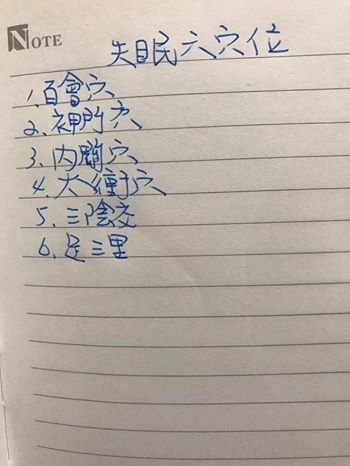 NOTE
失眠六穴位
1.百會穴
2.神門穴
3.內關穴
4.太衝穴
5.三陰交
6.足三里